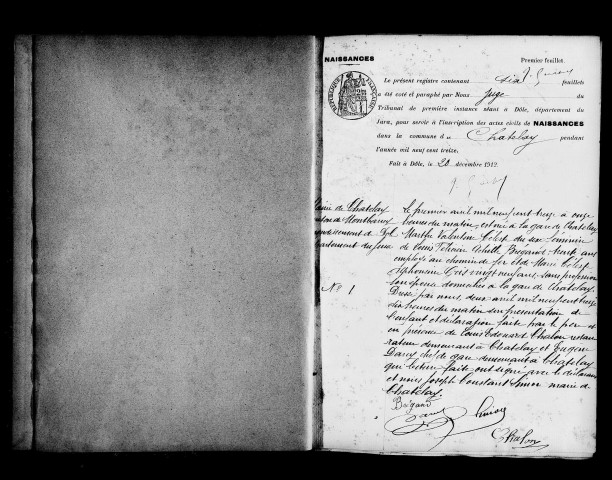 NAISSANCES
Premier feuillet.
Le présent registre contenant six feuillets
a été coté et paraphé par Nous Juge du
Tribunal de première instance séant à Dôle, département du
Jura, pour servir à l'inscription des actes civils de NAISSANCES
dans la commune de Chatelay pendant
l'année mil neuf cent treize.
Fait à Dôle, le 20 décembre 1912.
RÉPUBLIQUE FRANÇAISE
Mairie de Chatelay
canton de Montbarrey
arrondissement de Dôle
département du Jura
No 1
Le premier avril mil neuf cent treize à onze
heures du matin, est née à la gare de Chatelay
Marthe Valentine Célest du sexe féminin
de Louis Achille Brégand, trente ans
employé au chemin de fer et de Marie Célest
Alphonsine vingt neuf ans, sans profession
son épouse domiciliés à la gare de Chatelay.
Dressé par nous, deux avril mil neuf cent treize
dix heures du matin sur présentation de
l'enfant et déclaration faite par le père et
en présence de Louis Edouard Chalon restau
rateur demeurant à Chatelay et Eugène
Dany chef de gare demeurant à Chatelay
qui lecture faite ont signé avec le déclarant
et nous Joseph Constant Simon maire de
Chatelay.
Brégand
Simon
Chalon